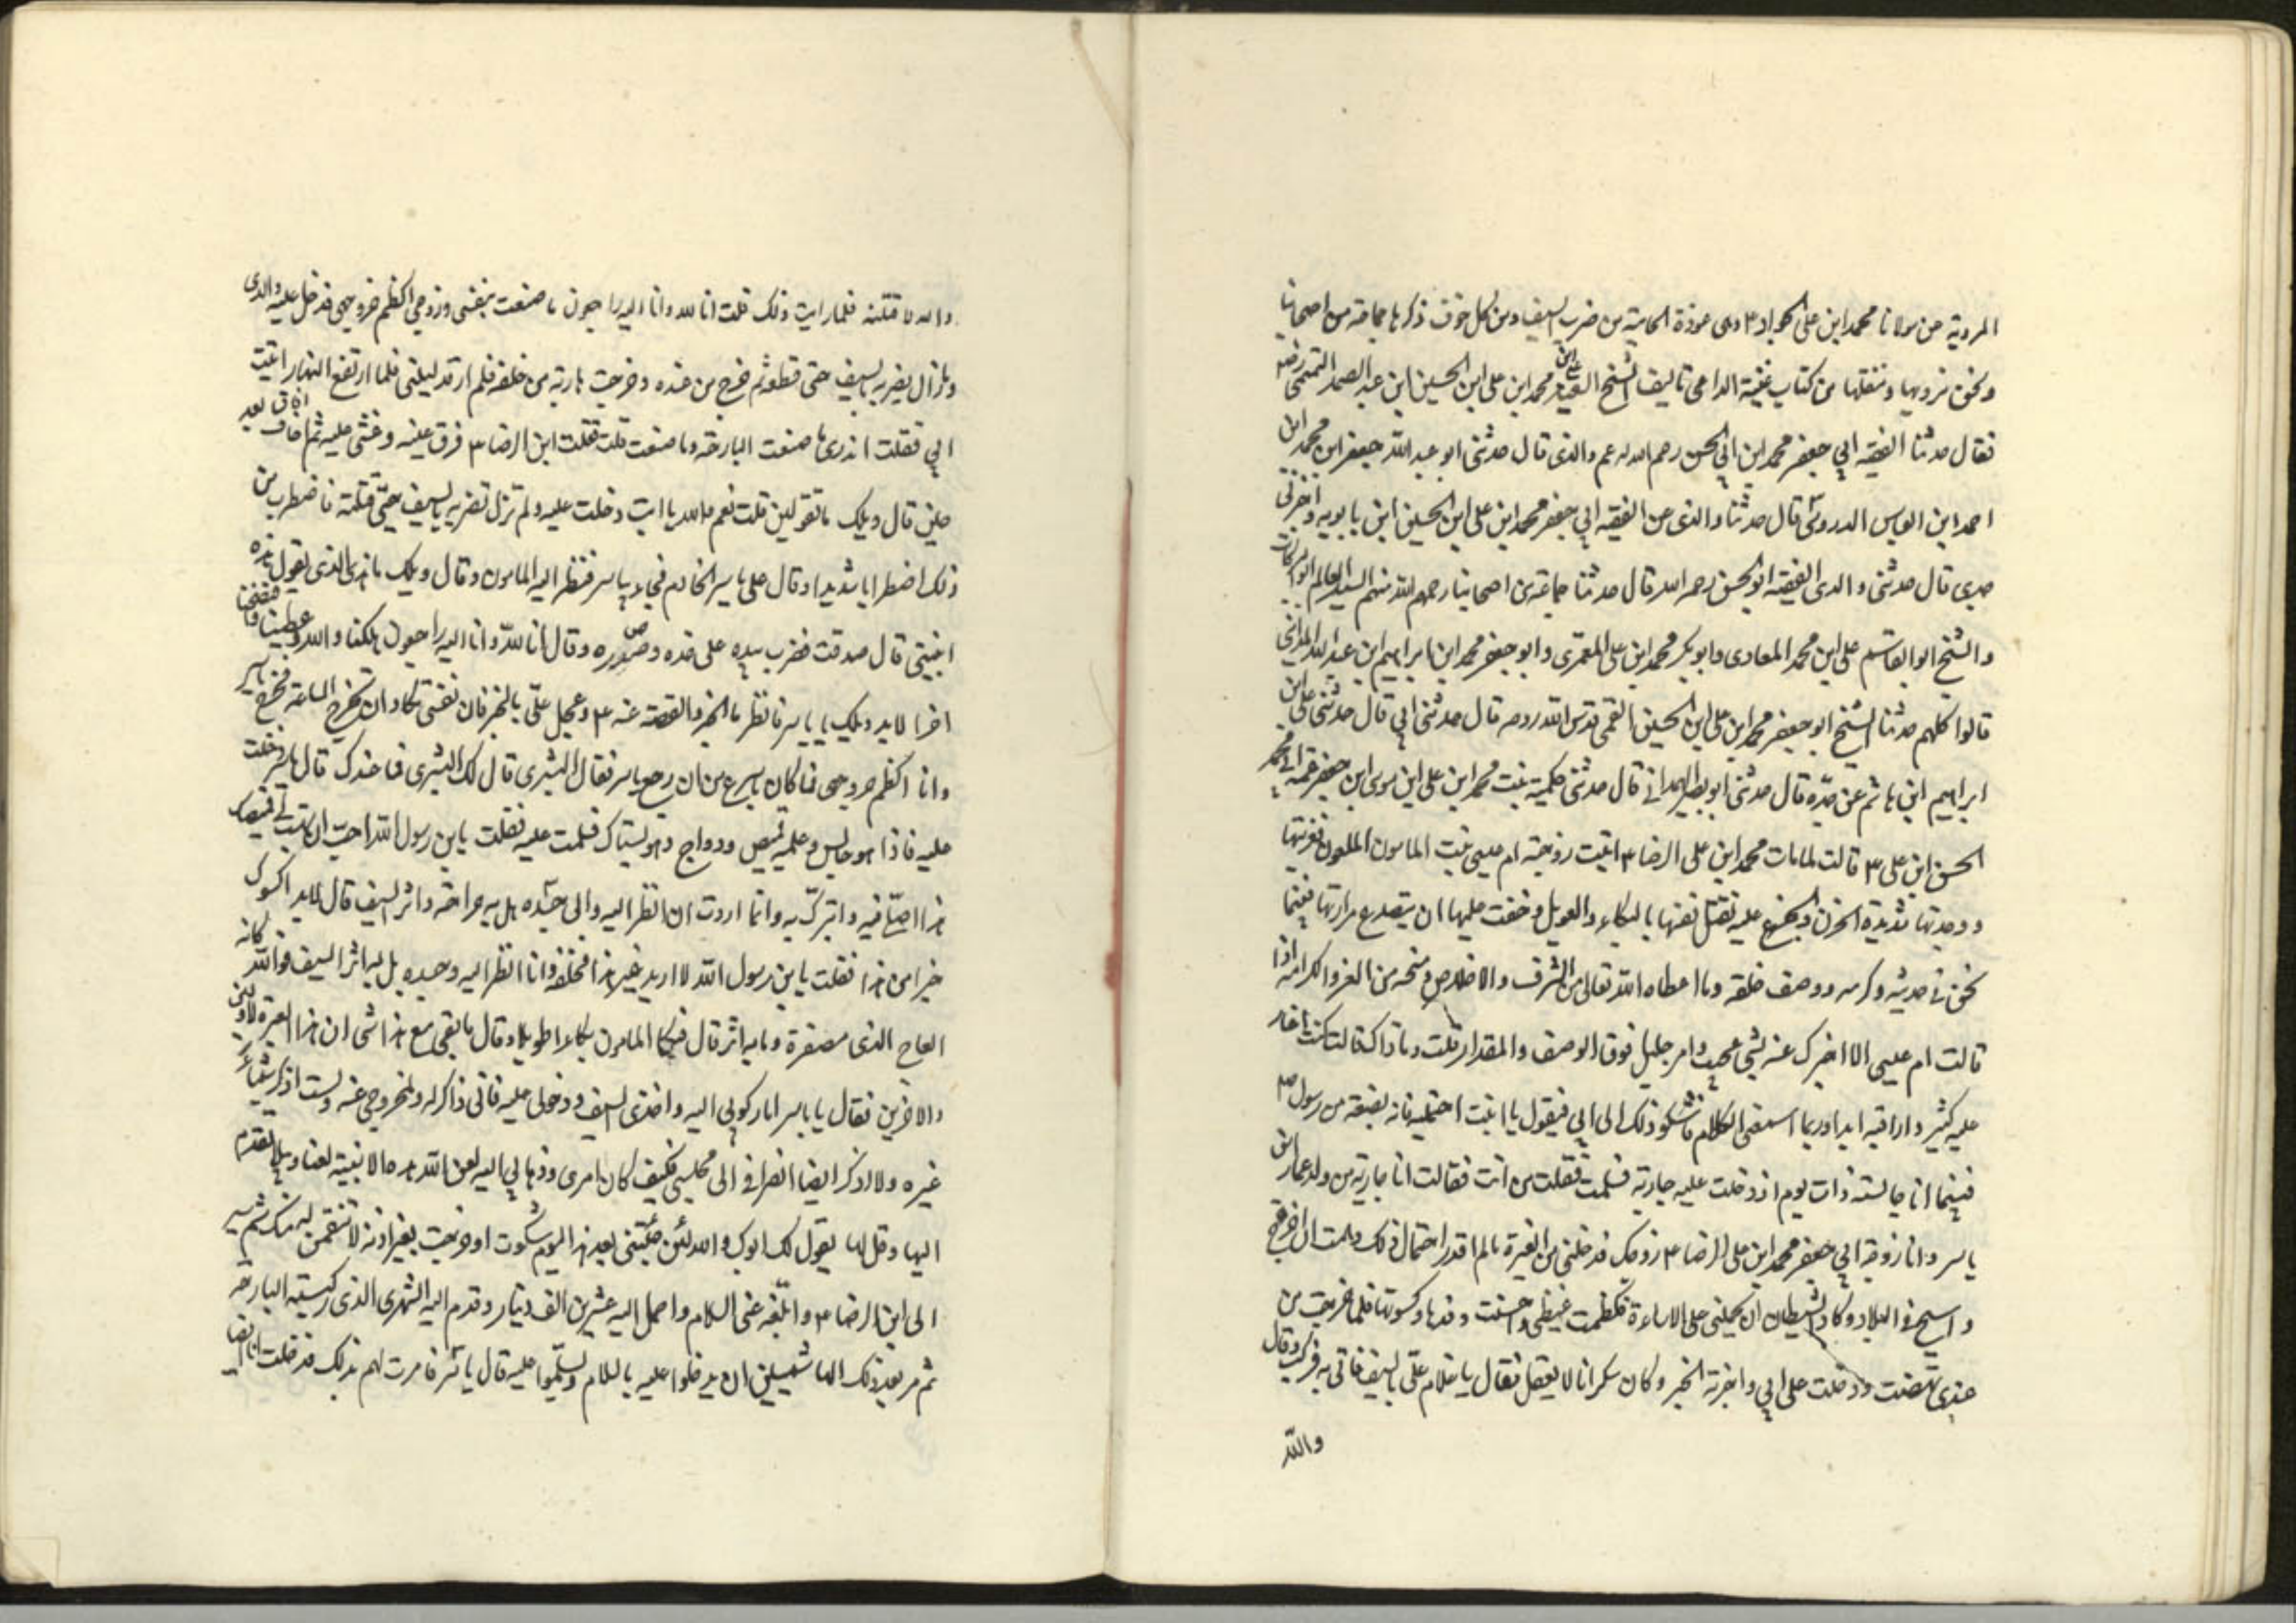 المروية عن مولانا محمد ابن علی الجواد ۴ وهی عوذة الحامية من ضرب السيف ومن كل خوف ذكرها جماعة من اصحابنا
ونحن نرويها وننقلها من كتاب غنية الداعی تاليف الشيخ الفقيه علی ابن محمد ابن علی ابن الحسين ابن عبد الصمد التميمی رضه
فقال حدثنا الفقيه ابي جعفر محمد ابن ابي الحسن رحمه الله عم والدی قال حدثنی ابو عبد الله جعفر ابن محمد ابن
احمد ابن العباس الدروستی قال حدثنا والدی عن الفقيه ابي جعفر محمد ابن علی ابن الحسين ابن بابويه واخبرنی
جدی قال حدثنی والدی الفقيه ابو الحسن رحمه الله قال حدثنا جماعة من اصحابنا رحمهم الله منهم السيد العالم ابو البركات
والشيخ ابو القاسم علی ابن محمد المعادی وابو بكر محمد ابن علی المعمری وابو جعفر محمد ابن ابراهيم ابن عبد الله المداينی
قالوا كلهم حدثنا الشيخ ابو جعفر محمد ابن علی ابن الحسين القمی قدس الله روحه قال حدثنی ابي قال حدثنی علی ابن
ابراهيم ابن هاشم عن جدّه قال حدثنی ابو نصر الهمدانی قال حدثتنی حكيمة بنت محمد ابن علی ابن موسی ابن جعفر عمة ابی محمد
الحسن ابن علی ۴ قالت لما مات محمد ابن علی الرضا ۴ اتيت زوجته ام عيسی بنت المامون الملعون فعزيتها
ووجدتها شديدة الحزن والجزع عليه تقتل نفسها بالبكاء والعويل فخفت عليها ان يتصدع مرارتها فبينما
نحن فی حديثه وكرمه ووصف خلقه وما اعطاه الله تعالی من الشرف والاخلاص ومنحه من العز والكرامة اذا
قالت ام عيسی الا اخبرك عنه بشی عجيب وامر جليل فوق الوصف والمقدار قلت وما ذاك قالت كنت اغار
عليه كثير واراقبه ابدا وربما اسمعنی الكلام فاشكو ذلك الی ابي فيقول يا ابنت احتمليه فانه بضعة من رسول الله
فبينما انا جالسة ذات يوم اذ دخلت عليه جارية فسلمت فقلت من انت فقالت انا جارية من ولد عمار ابن
ياسر وانا زوجة ابي جعفر محمد ابن علی الرضا ۴ زوجك فدخلنی من الغيرة ما لم اقدر احتمال ذلك وهمت ان اخرج
واسيح فی البلاد وكاد الشيطان ان يحملنی علی الاساءة فكظمت غيظی واحسنت رفدها وكسوتها فلما خرجت من
عندی نهضت ودخلت علی ابي واخبرته الخبر وكان سكرانا لا يعقل فقال يا غلام علیّ بالسيف فاتی به فركب وقال
والله
والله لاقتلنه فلما رايت ذلك قلت انا لله وانا اليه راجعون ما صنعت بنفسی وزوجی اكظم خروجی فدخل عليه والدی
وما زال يضربه بالسيف حتی قطعه ثم خرج من عنده وخرجت هاربة من خلفه فلم ارقد ليلتی فلما ارتفع النهار اتيت
ابي فقلت اتدری ما صنعت البارحة وما صنعت قلت قتلت ابن الرضا ۴ فبرق عينه وغشی عليه ثم افاق بعد
حين قال ويلك ما تقولين قلت نعم والله يا ابت دخلت عليه ولم تزل تضربه بالسيف حتی قتلته فاضطرب من
ذلك اضطرابا شديدا وقال علی بياسر الخادم فجاء ياسر فنظر اليه المامون وقال ويلك ما هذا الذی تقول هذه
ابنتی قال صدقت فضرب بيده علی خده وصدره وقال انا لله وانا اليه راجعون هلكنا والله وعطبنا وافتضحنا
اخر الابد ويلك يا ياسر فانظر ما الخبر والقصة عنه ۴ وعجل علیّ بالخبر فان نفسی تكاد ان تخرج الساعة فخرج ياسر
وانا اكظم خروجی فما كان باسرع من ان رجع ياسر فقال البشری قال لك البشری فما عندك قال ياسر دخلت
عليه فاذا هو جالس وعليه قميص ودواج وهو يستاك فسلمت عليه فقلت يا بن رسول الله احب ان تهب لی قميصك
هذا اصلّی فيه واتبرك به وانما اردت ان انظر اليه والی جسده هل به جراحة واثر السيف قال لا بد اكسوك
خيرا من هذا فقلت يا بن رسول الله لا اريد غير هذا فخلعه وانا انظر اليه وجسده هل به اثر السيف فوالله كانه
العاج الذی مسّه صفرة وما به اثر قال فبكا المامون بكاء طويلا وقال ما بقی مع هذا شی ان هذا العبرة للاولين
والاخرين فقال يا ياسر اما ركوبی اليه واخذی السيف ودخولی عليه فانی ذاكر له ولخروجی عنه ولست اذكر شيئا
غيره ولا اذكر ايضا انصرافی الی مجلسی فكيف كان امری وذهابي اليه لعن الله هذه الابنية لعنا وبيلا تقدم
اليها وقل لها يقول لك ابوك والله لئن جئتنی بعد هذا اليوم شكوت او خرجت بغير اذنه لانتقمن له منك ثم سر
الی ابن الرضا ۴ وابلغه عنی السلام واحمل اليه عشرين الف دينار وقدم اليه الشهری الذی ركبته البارحه
ثم مر بعد ذلك الهاشميين ان يدخلوا عليه بالسلام ويسلّموا عليه قال ياسر فامرت لهم بذلك فدخلت انا ايضا